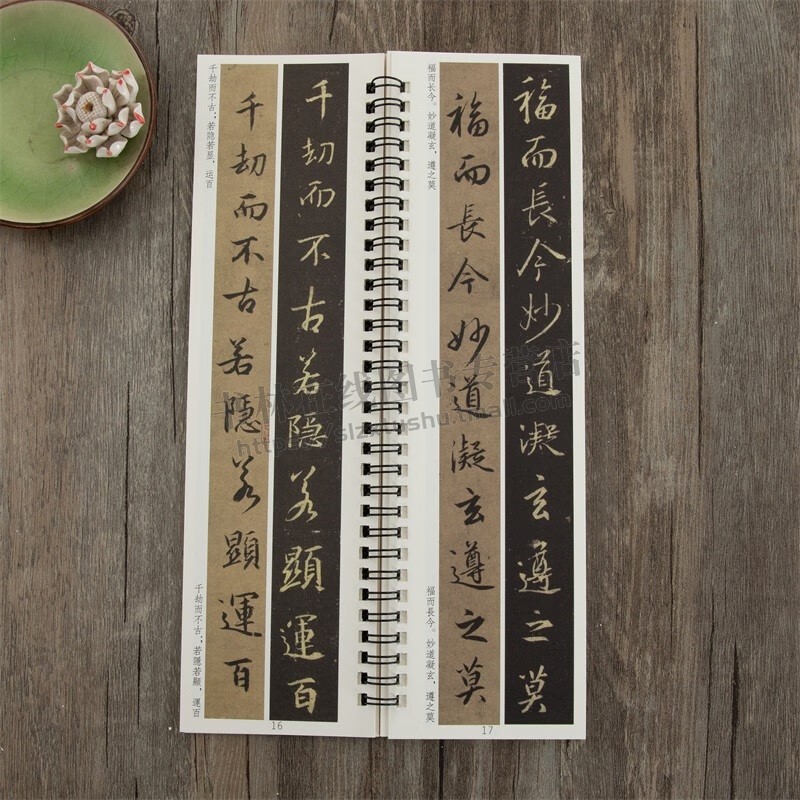 千劫而不古;若隐若显,运百
千劫而不古;若隱若顯,運百
千劫而不古若隱若顯運百
千劫而不古若隱若顯運百
16
福而长今。妙道凝玄,遵之莫
福而長今。妙道凝玄,遵之莫
福而長今妙道凝玄遵之莫
福而長今妙道凝玄遵之莫
17
林在线图书专营店
https://slzxtushu.tmall.com